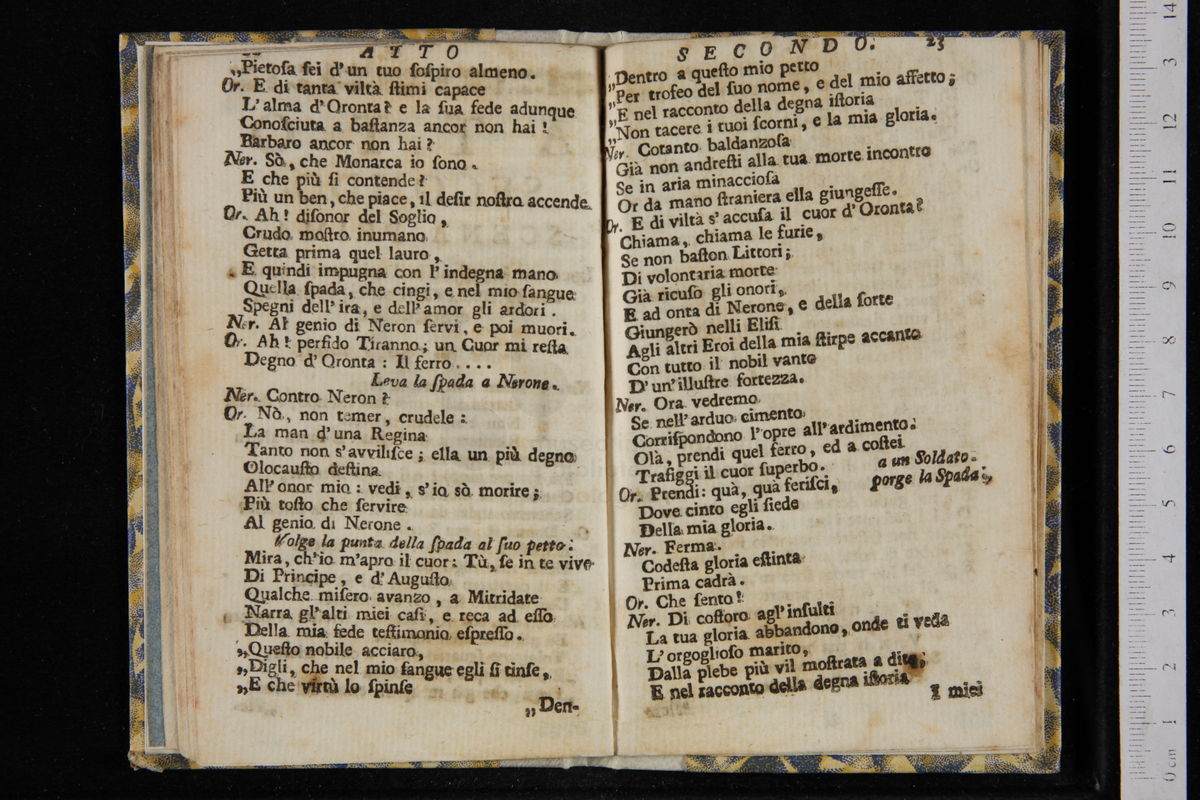 ATTO
„Pietoſa ſei d'un tuo ſoſpiro almeno.
Or. E di tanta viltà ſtimi capace
L'alma d'Oronta? e la ſua fede adunque
Conoſciuta a baſtanza ancor non hai!
Barbaro ancor non hai?
Ner. Sò, che Monarca io ſono.
E che più ſi contende?
Più un ben, che piace, il deſir noſtro accende.
Or. Ah! diſonor del Soglio,
Crudo moſtro inumano
Getta prima quel lauro,
E quindi impugna con l'indegna mano
Quella ſpada, che cingi, e nel mio ſangue
Spegni dell'ira, e dell'amor gli ardori.
Ner. Al genio di Neron ſervi, e poi muori.
Or. Ah! perfido Tiranno; un Cuor mi reſta
Degno d'Oronta: Il ferro....
Leva la ſpada a Nerone.
Ner. Contro Neron?
Or. Nò, non temer, crudele:
La man d'una Regina
Tanto non s'avviliſce; ella un più degno
Olocauſto deſtina
All'onor mio: vedi, s'io sò morire;
Più toſto che ſervire
Al genio di Nerone.
Volge la punta della ſpada al ſuo petto:
Mira, ch'io m'apro il cuor: Tù, ſe in te vive
Di Principe, e d'Auguſto
Qualche miſero avanzo, a Mitridate
Narra gl'alti miei caſi, e reca ad eſſo
Della mia fede teſtimonio eſpreſſo.
„Queſto nobile acciaro,
„Digli, che nel mio ſangue egli ſi tinſe,
„E che virtù lo ſpinſe
„Den-
SECONDO. 23
„Dentro a queſto mio petto
„Per trofeo del ſuo nome, e del mio affetto;
„E nel racconto della degna iſtoria
„Non tacere i tuoi ſcorni, e la mia gloria.
Ner. Cotanto baldanzoſa
Già non andreſti alla tua morte incontro
Se in aria minaccioſa
Or da mano ſtraniera ella giungeſſe.
Or. E di viltà s'accuſa il cuor d'Oronta?
Chiama, chiama le furie,
Se non baſton Littori;
Di volontaria morte
Già ricuſo gli onori,
E ad onta di Nerone, e della ſorte
Giungerò nelli Eliſi
Agli altri Eroi della mia ſtirpe accanto
Con tutto il nobil vanto
D'un'illuſtre fortezza.
Ner. Ora vedremo
Se nell'arduo cimento
Corriſpondono l'opre all'ardimento:
Olà, prendi quel ferro, ed a coſtei
Trafiggi il cuor ſuperbo. a un Soldato.
Or. Prendi: quà, quà feriſci, porge la Spada;
Dove cinto egli ſiede
Della mia gloria.
Ner. Ferma.
Codeſta gloria eſtinta
Prima cadrà.
Or. Che ſento!
Ner. Di coſtoro agl'inſulti
La tua gloria abbandono, onde ti veda
L'orgoglioſo marito,
Dalla plebe più vil moſtrata a dito;
E nel racconto della degna iſtoria
I miei